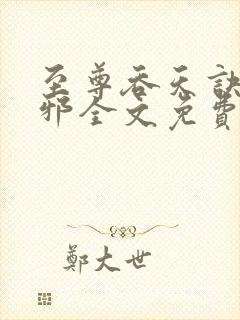 至尊吞天訣
邪全文免費
鄭大世